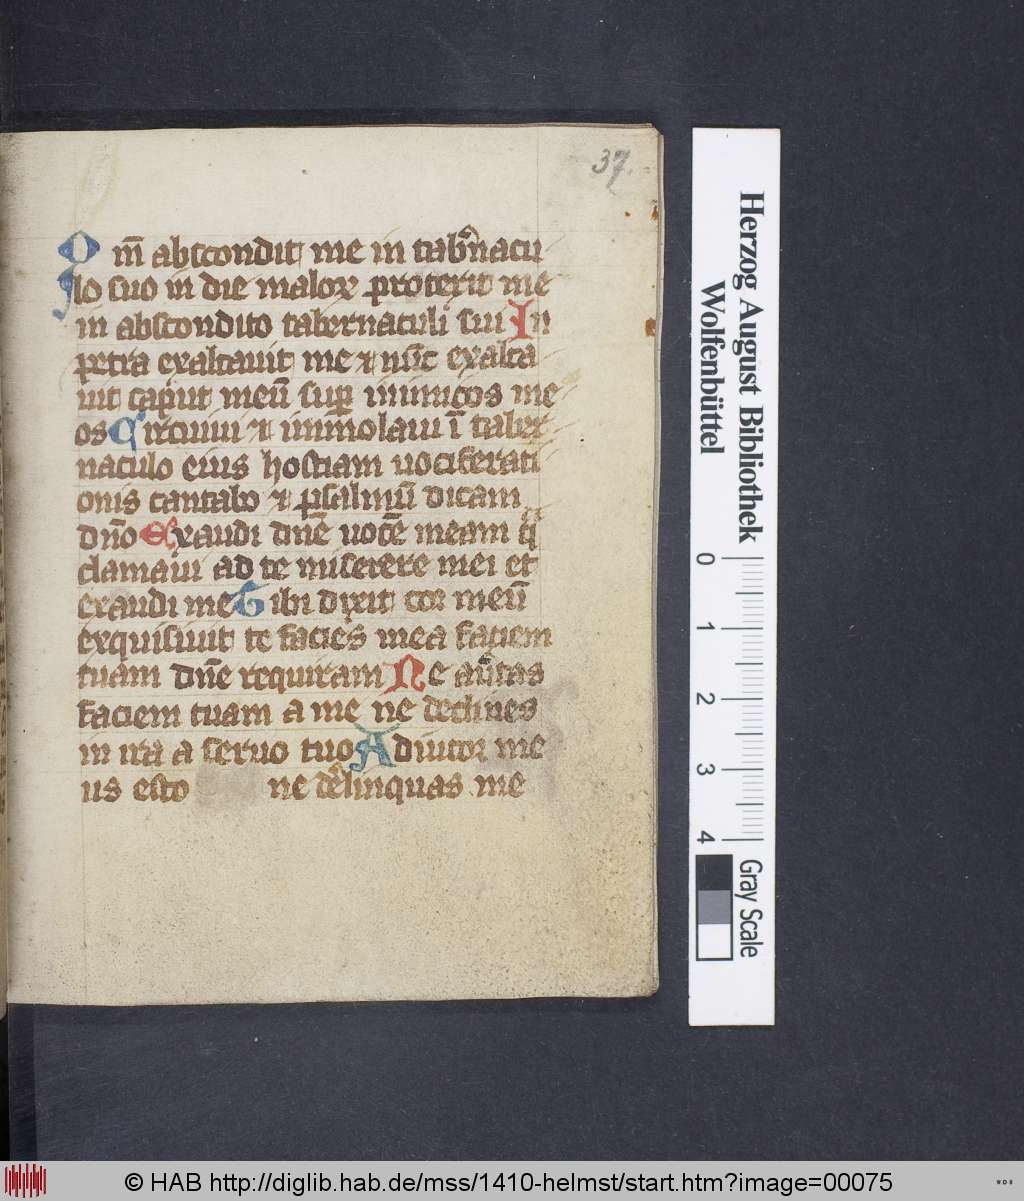 37.
Qm̄ abscondit me in tab̉nacu
lo suo in die maloꝝ protexit me
in abscondito tabernaculi sui In
petra exaltauit me ⁊ nūc exalta
uit caput meū suꝑ inimicos me
os Circuiui ⁊ immolaui ī taber
naculo eius hostiam uociferati
onis cantabo ⁊ psalmū dicam
dn̄o Exaudi dn̄e uocē meam q̄
clamaui ad te miserere mei et
exaudi me Tibi dixit cor meū
exquisiuit te facies mea faciem
tuam dn̄e requiram Ne au̓tas
faciem tuam a me ne declines
in ira a seruo tuo Adiutor me
us esto ne derelinquas me
Herzog August Bibliothek
Wolfenbüttel
0 1 2 3 4
Gray Scale
© HAB http://diglib.hab.de/mss/1410-helmst/start.htm?image=00075